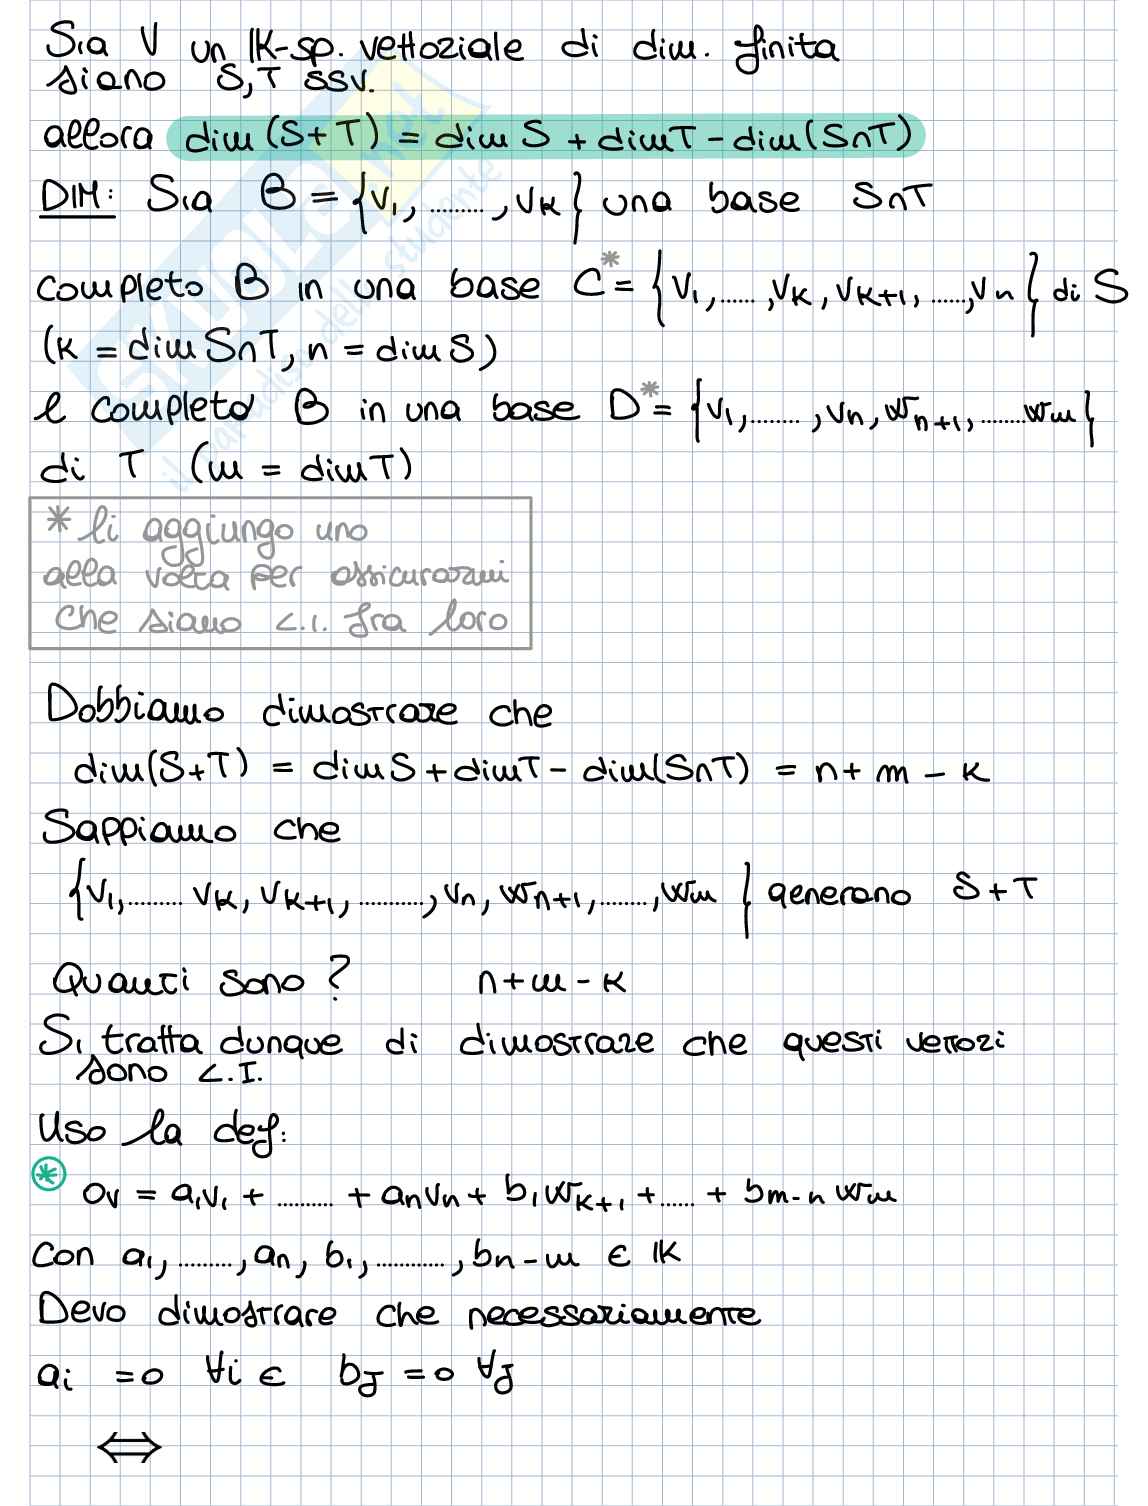 Sia V un IK-sp. vettoriale di dim. finita
siano S,T ssv.
allora dim(S+T) = dim S + dimT - dim(S∩T)
DIM: Sia B = {v₁, ........, vₖ} una base S∩T
completo B in una base C* = {v₁, ......, vₖ, vₖ₊₁, ......, vₙ} di S
(k = dim S∩T, n = dim S)
e completo B in una base D* = {v₁, ........, vₙ, wₙ₊₁, ........ wₘ}
di T (m = dimT)
* li aggiungo uno
alla volta per assicurarmi
che siano L.I. fra loro
Dobbiamo dimostrare che
dim(S+T) = dim S + dimT - dim(S∩T) = n + m - k
Sappiamo che
{v₁, ......... vₖ, vₖ₊₁, ..........., vₙ, wₙ₊₁, ........, wₘ} generano S+T
Quanti sono? n + m - k
Si tratta dunque di dimostrare che questi vettori
sono L.I.
Uso la def:
* 0ᵥ = a₁v₁ + .......... + aₙvₙ + b₁wₖ₊₁ + ...... + bₘ₋ₙ wₘ
con a₁, ........., aₙ, b₁, ............, bₙ₋ₘ ∈ IK
Devo dimostrare che necessariamente
aᵢ = 0 ∀i ∈ bⱼ = 0 ∀j
⟺
SKUOLA.net
il paradiso dello studente